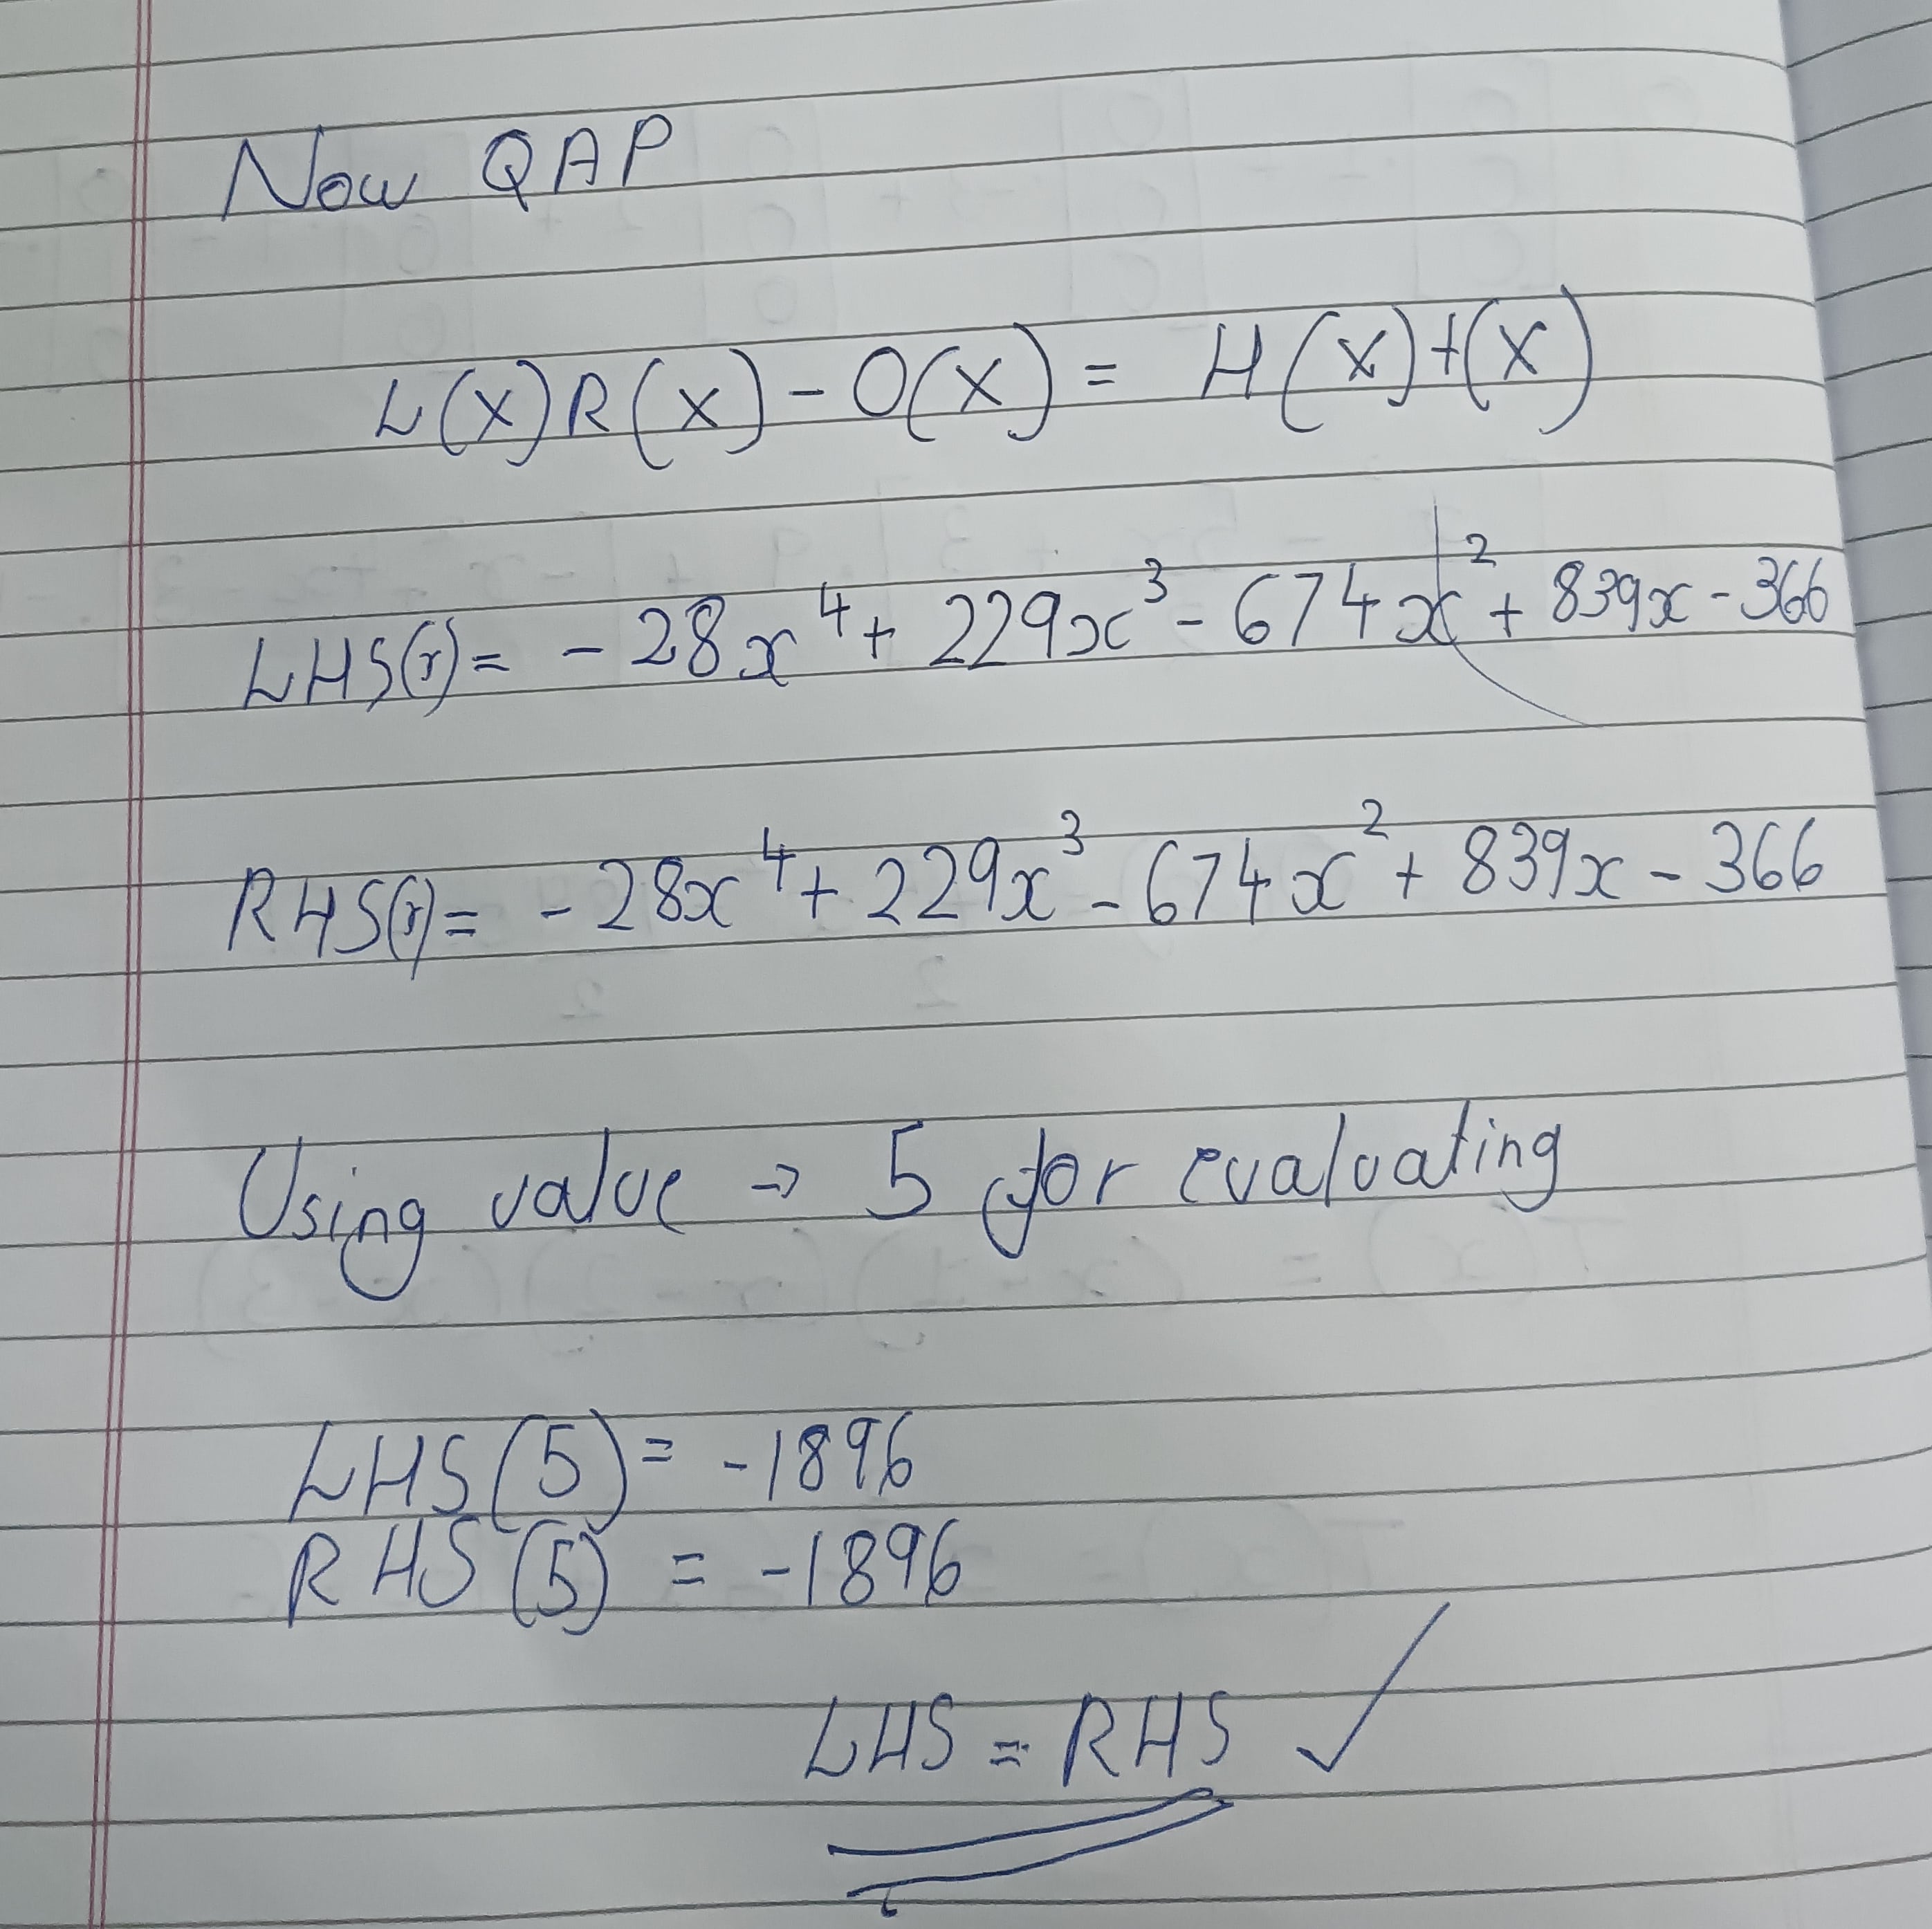 Now QAP
L(x)R(x) - O(x) = H(x)t(x)
LHS(r) = - 28x⁴ + 229x³ - 674x² + 839x - 366
RHS(r) = - 28x⁴ + 229x³ - 674x² + 839x - 366
Using value → 5 for evaluating
LHS(5) = -1896
RHS(5) = -1896
LHS = RHS ✓